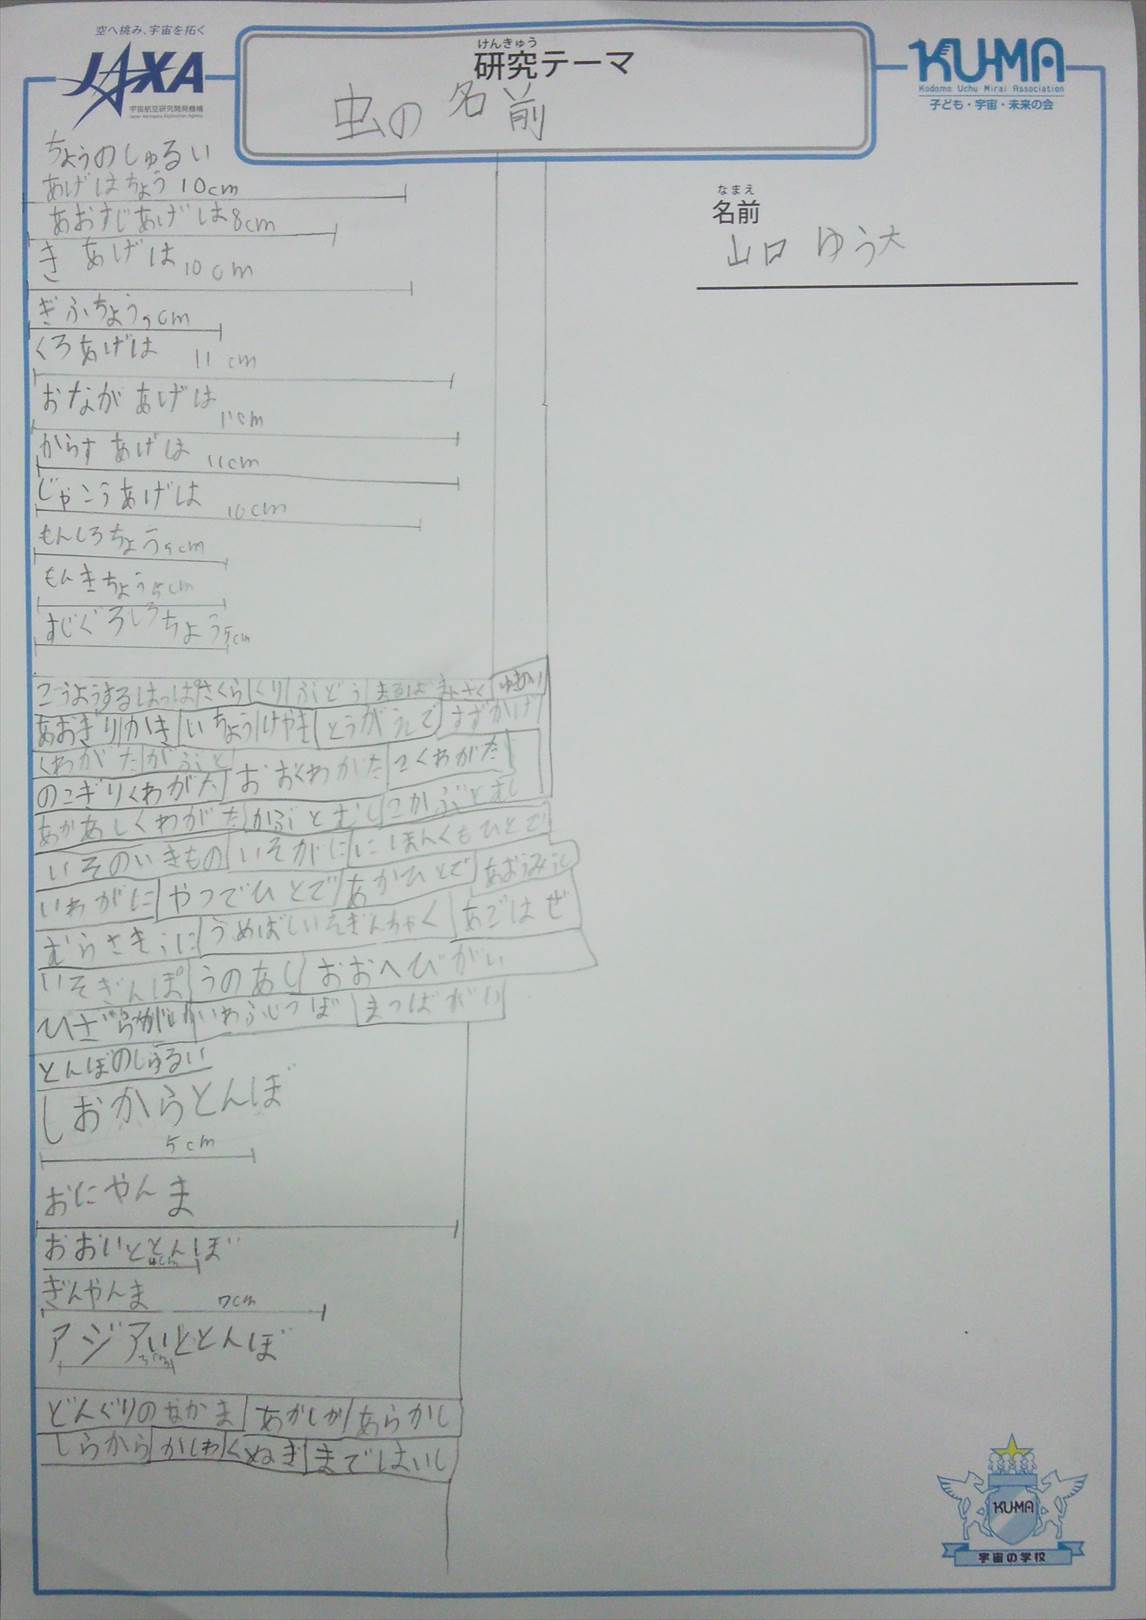 空へ挑み、宇宙を拓く
JAXA
宇宙航空研究開発機構
Japan Aerospace Exploration Agency
けんきゅう
研究テーマ
虫の名前
KU-MA
Kodomo Uchu Mirai Association
子ども・宇宙・未来の会
なまえ
名前
山口 ゆう大
ちょうのしゅるい
あげはちょう 10cm
あおすじあげは8cm
きあげは10cm
ぎふちょう5cm
くろあげは 11cm
おながあげは11cm
からすあげは 11cm
じゃこうあげは 10cm
もんしろちょう5cm
もんきちょう5cm
すじぐろしろちょう5cm
こうようするはっぱ さくら くり ぶどう まるばまんさく
あおぎり かき いちょう けやき とうかえで すずかけ
くわがた かぶと
のこぎりくわがた おおくわがた こくわがた
あかあしくわがた かぶとむし こかぶとむし
いそのいきもの いそがに にほんくもひとで
いわがに やつでひとで あかひとで あおうみうし
むらさきうに うめぼしいそぎんちゃく あごはぜ
いそぎんぽ うのあし おおへびがい
ひざらがい いわふじつぼ まつばがい
とんぼのしゅるい
しおからとんぼ
5cm
おにやんま
おおいととんぼ
4cm
ぎんやんま 7cm
アジアいととんぼ
どんぐりのなかま あかしか あらかし
しらから かしわ くぬぎ までばいし
KU-MA
宇宙の学校